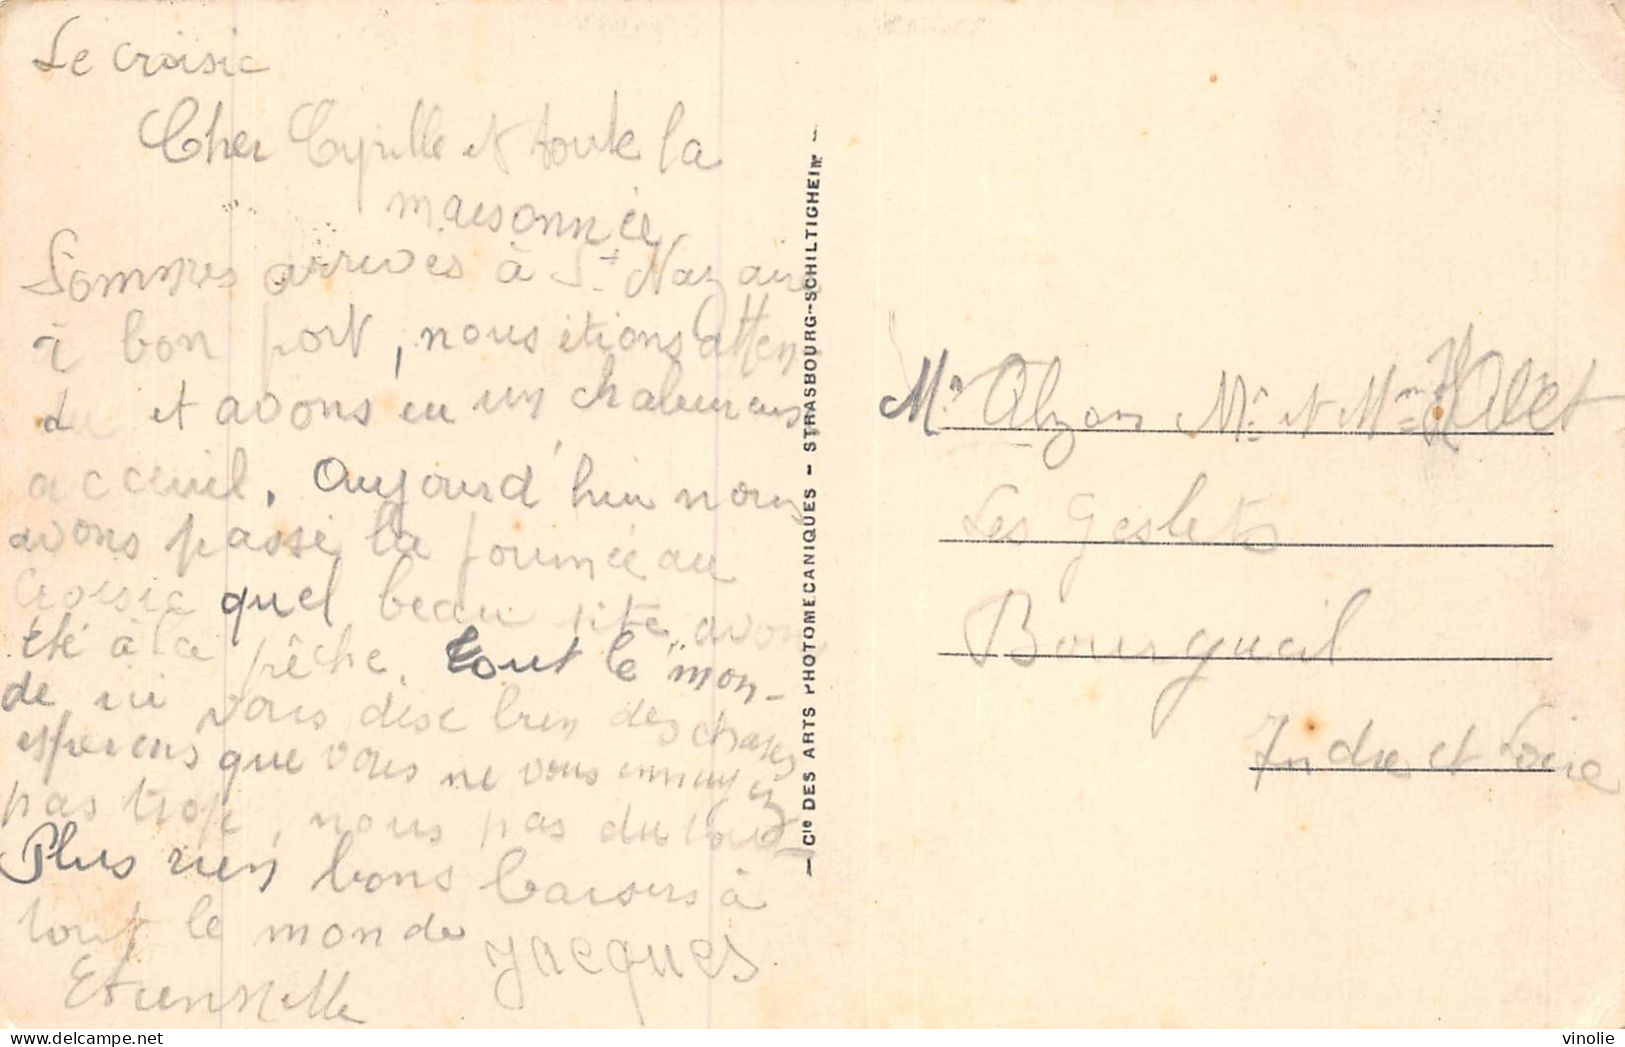 Le croisic
Cher Cyrille et toute la
maisonnée
Sommes arrives à St Nazaire
à bon port, nous étions atten
du et avons eu un chaleureus
acceuil. Aujourd'hui nous
avons passé la journée au
Croisic quel beau site, avons
été à la pêche. tout le mon-
de ici vous dise bien des choses
esperons que vous ne vous ennuyez
pas trop, nous pas du tout
Plus rien bons baisers à
tout le monde Jacques
Etiennette
— Cie DES ARTS PHOTOMECANIQUES - STRASBOURG--SCHILTIGHEIM —
Mr Alzon Mr et Mme
Les Geslets
Bourgueil
Indre et Loire
vinolie